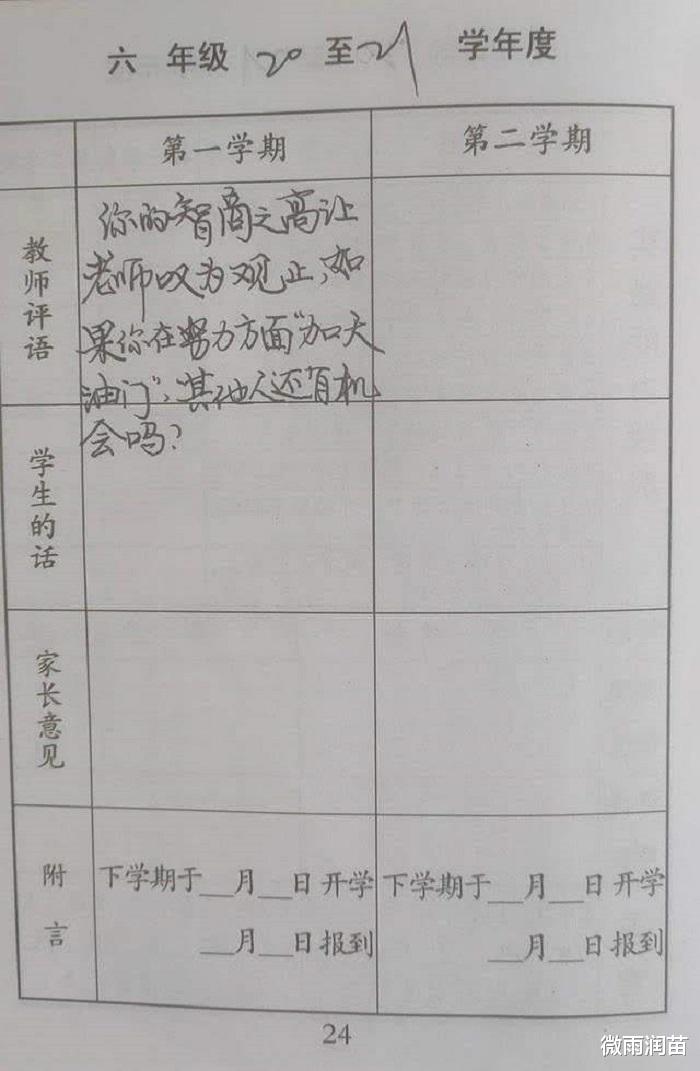 六 年级 20 至 21 学年度
第一学期 第二学期
教师评语
你的智商之高让
老师叹为观止,如
果你在努力方面“加大
油门”,其他人还有机
会吗?
学生的话
家长意见
附言
下学期于__月__日开学 下学期于__月__日开学
__月__日报到 __月__日报到
24
微雨润苗